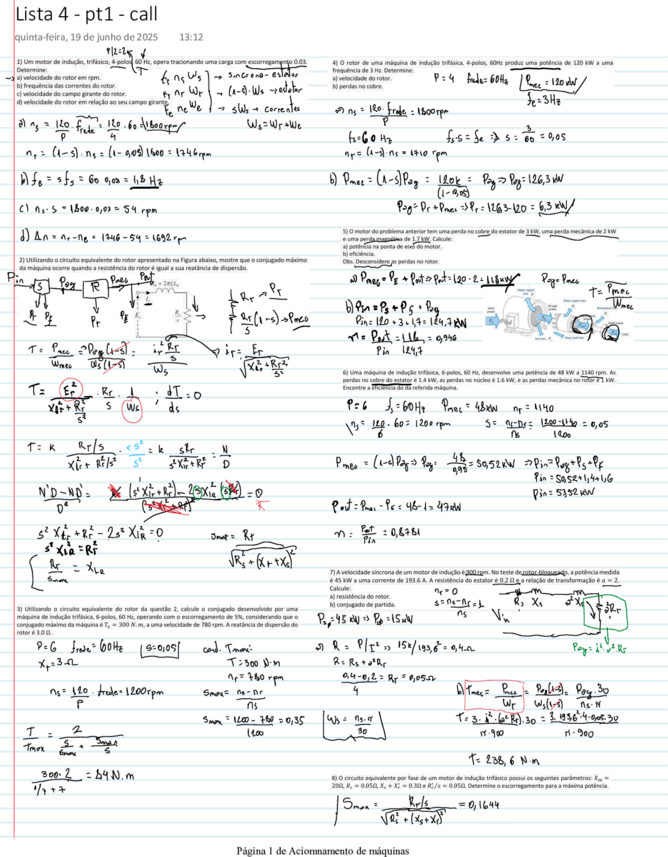 Lista 4 - pt1 - call
quinta-feira, 19 de junho de 2025 13:12
P/2=2
1) Um motor de indução, trifásico, 4-polos, 60 Hz, opera tracionando uma carga com escorregamento 0.03.
Determine:
a) velocidade do rotor em rpm.
b) frequência das correntes do rotor.
c) velocidade do campo girante do rotor.
d) velocidade do rotor em relação ao seu campo girante.
fs ns Ws → síncrona - estator
fr nr Wr → (1-s)·Ws → rotor
fe ne We → sWs → correntes
Ws = Wr + We
a) ns = 120/P · frede = 120/4 · 60 = 1800 rpm
nr = (1-s)·ns = (1-0,03) 1800 = 1746 rpm
b) fe = s fs = 60 0,03 = 1,8 Hz
c) ns·s = 1800·0,03 = 54 rpm
d) Δn = nr - ne = 1746 - 54 = 1692 rpm
2) Utilizando o circuito equivalente do rotor apresentado na Figura abaixo, mostre que o conjugado máximo
da máquina ocorre quando a resistência do rotor é igual a sua reatância de dispersão.
Pin Pag Pmec Pout
S R
Rr → Pr
Rr/s (1-s) → Pmec
T = Pmec/Wmec = Pag(1-s)/Ws(1-s) = ir² Rr/s / Ws
ir = Er/√(Xlr² + Rr²/s²)
T = Er²/(Xlr² + Rr²/s²) · Rr/s · 1/Ws ; dT/ds = 0
T = k Rr/s / (Xlr² + Rr²/s²) · × s²/s² = k sRr/(s²Xlr² + Rr²) = N/D
N'D - ND'/D² =
s² Xlr² + Rr² - 2s² Xlr² = 0
s² Xlr² = Rr²
Rr/smax = Xlr
smax = Rr/√(Rs² + (Xr + Xs)²)
3) Utilizando o circuito equivalente do rotor da questão 2, calcule o conjugado desenvolvido por uma
máquina de indução trifásica, 6-polos, 60 Hz, operando com o escorregamento de 5%, considerando que o
conjugado máximo da máquina é Te = 300 N.m, a uma velocidade de 780 rpm. A reatância de dispersão do
rotor é 3.0 Ω.
P=6 frede = 60 Hz s = 0,05
Xr = 3 Ω
ns = 120/P · frede = 1200 rpm
cond. Tmax:
T = 300 N·m
nr = 780 rpm
smax = ns - nr/ns
smax = 1200 - 780/1200 = 0,35
T/Tmax = 2/(s/smax + smax/s)
300·2/(1/7 + 7) = 84 N.m
4) O rotor de uma máquina de indução trifásica, 4-polos, 60Hz produz uma potência de 120 kW a uma
frequência de 3 Hz. Determine:
a) velocidade do rotor.
b) perdas no cobre.
P = 4 frede = 60 Hz Pmec = 120 kW
fe = 3 Hz
a) ns = 120·frede/P = 1800 rpm
fs = 60 Hz fs·s = fe ⇒ s = 3/60 = 0,05
nr = (1-s)·ns = 1710 rpm
b) Pmec = (1-s)Pag = 120k/(1-0,05) = Pag ⇒ Pag = 126,3 kW
Pag = Pr + Pmec ⇒ Pr = 126,3 - 120 = 6,3 kW
5) O motor do problema anterior tem uma perda no cobre do estator de 3 kW, uma perda mecânica de 2 kW
e uma perda magnética de 1.7 kW. Calcule:
a) potência na ponta de eixo do motor.
b) eficiência.
Obs. Desconsidere as perdas no rotor.
Pag = Pmec
T = Pmec/Wmec
a) Pmec = Ps + Pout ⇒ Pout = 120 - 2 = 118 kW
b) Pin = Ps + Ps + Pag
Pin = 120 + 3 + 1,7 = 124,7 kW
n = Pout/Pin = 118/124,7 = 0,946
6) Uma máquina de indução trifásica, 6-polos, 60 Hz, desenvolve uma potência de 48 kW a 1140 rpm. As
perdas no cobre do estator é 1.4 kW, as perdas no núcleo é 1.6 kW, e as perdas mecânica no rotor é 1 kW.
Encontre a eficiência do da referida máquina.
P = 6 fs = 60 Hz Pmec = 48 kW nr = 1140
ns = 120/6 · 60 = 1200 rpm s = ns - nr/ns = 1200 - 1140/1200 = 0,05
Pmec = (1-s)Pag ⇒ Pag = 48/0,95 = 50,52 kW ⇒ Pin = Pag + Ps + Pf
Pin = 50,52 + 1,4 + 1,6
Pin = 53,52 kW
Pout = Pmec - Ps = 48 - 1 = 47 kW
n = Pout/Pin = 0,8781
7) A velocidade síncrona de um motor de indução é 900 rpm. No teste de rotor-bloqueado, a potência medida
é 45 kW a uma corrente de 193.6 A. A resistência do estator é 0.2 Ω e a relação de transformação é a = 2.
Calcule:
a) resistência do rotor.
b) conjugado de partida.
nr = 0
s = ns - nr/ns = 1
P3φ = 45 kW ⇒ Pφ = 15 kW
a) R = P/I² ⇒ 15k/193,6² = 0,4 Ω
R = Rs + a²Rr
0,4 - 0,2/4 = Rr = 0,05 Ω
Ws = ns·π/30
b) Tmec = Pmec/Wr = Pag(1-s)/Ws(1-s) = Pag·30/ns·π
T = 3·i²·(a² Rr)·30/π·900 = 3·193,6²·4·0,05·30/π·900
T = 238,6 N·m
8) O circuito equivalente por fase de um motor de indução trifásico possui os seguintes parâmetros: Xm =
20Ω, Rs = 0.05Ω, Xs + X'r = 0.3Ω e R'r/s = 0.05Ω. Determine o escorregamento para a máxima potência.
Smax = Rr/s / √(Rs² + (Xs + Xr)²) = 0,1644
Página 1 de Aciomnamento de máquinas